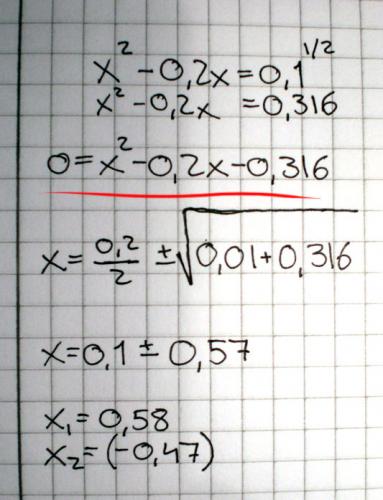 x² - 0,2x = 0,1^1/2
x² - 0,2x = 0,316
0 = x² - 0,2x - 0,316
x = 0,2/2 ± √0,01 + 0,316
x = 0,1 ± 0,57
x₁ = 0,58
x₂ = (-0,47)